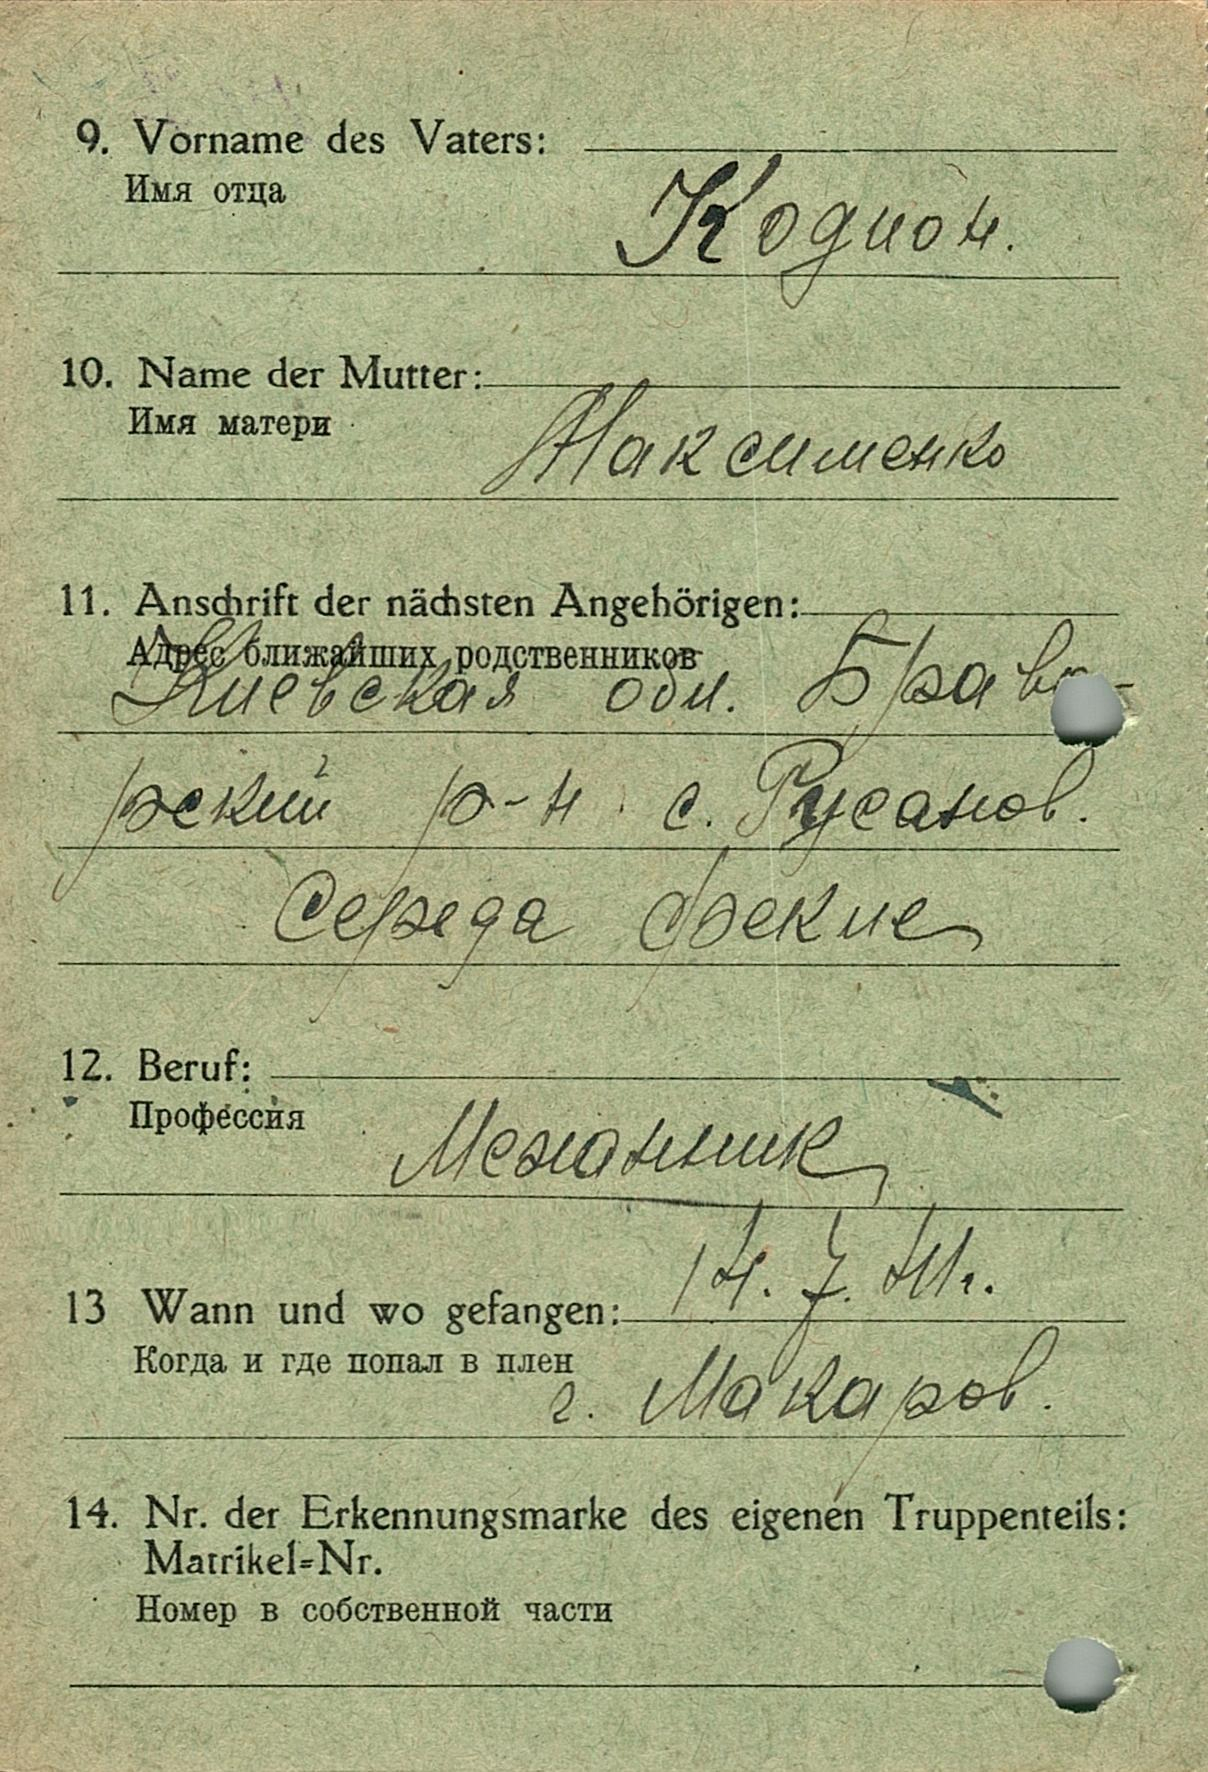 9. Vorname des Vaters:
Имя отца
Кодион.
10. Name der Mutter:
Имя матери
Максименко
11. Anschrift der nächsten Angehörigen:
Адрес ближайших родственников
Киевская обл.
рский р-н с. Русанов.
Середа Фекие
12. Beruf:
Профессия
Механник
14. 7. 41 г.
13 Wann und wo gefangen:
Когда и где попал в плен
г. Макаров.
14. Nr. der Erkennungsmarke des eigenen Truppenteils:
Matrikel=Nr.
Номер в собственной части